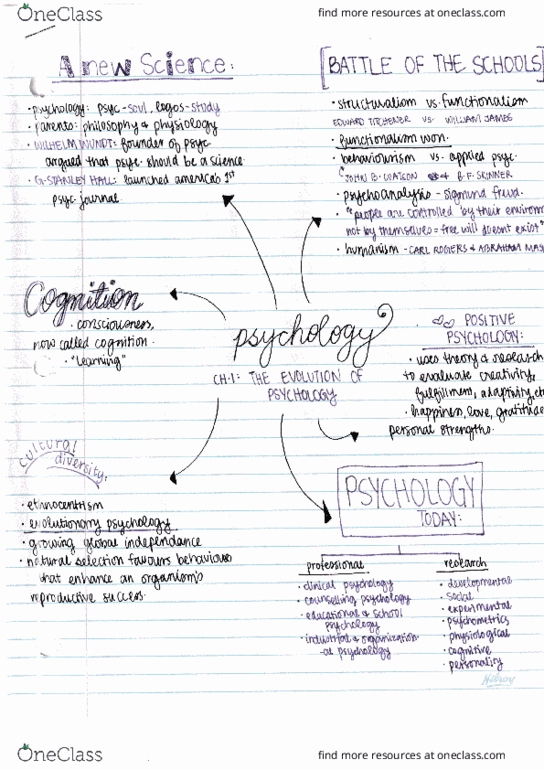 OneClass
find more resources at oneclass.com
A new Science:
• psychology: psyc - soul, logos - study
• parents: philosophy & physiology
• WILHELM WUNDT: founder of psyc
argued that psyc should be a science
• G. STANLEY HALL: launched america's 1st
psyc journal
[BATTLE OF THE SCHOOLS]
• structuralism vs. functionalism
EDWARD TITCHENER VS. WILLIAM JAMES
• functionalism won.
• behaviourism vs. applied psyc.
JOHN B. WATSON B.F. SKINNER
• psychoanalysis - sigmund freud
• "people are controlled by their environm
not by themselves = free will doesnt exist"
• humanism - CARL ROGERS & ABRAHAM MAS
Cognition
• consciousness,
now called cognition.
• "learning"
psychology
CH.1: THE EVOLUTION OF
PSYCHOLOGY
POSITIVE
PSYCHOLOGY:
• uses theory & research
to evaluate creativity,
fulfillment, adaptivity, etc
• happiness, love, gratitude
personal strengths.
cultural
diversity:
• ethnocentrism
• evolutionary psychology
• growing global independance
• natural selection favours behaviours
that enhance an organism's
reproductive success.
PSYCHOLOGY
TODAY:
professional
• clinical psychology
• counselling psychology
• educational & school
psychology
• industrial & organization
-al psychology
research
• developmental
• social
• experimental
• psychometrics
• physiological
• cognitive
• personality
Hilroy
OneClass
find more resources at oneclass.com